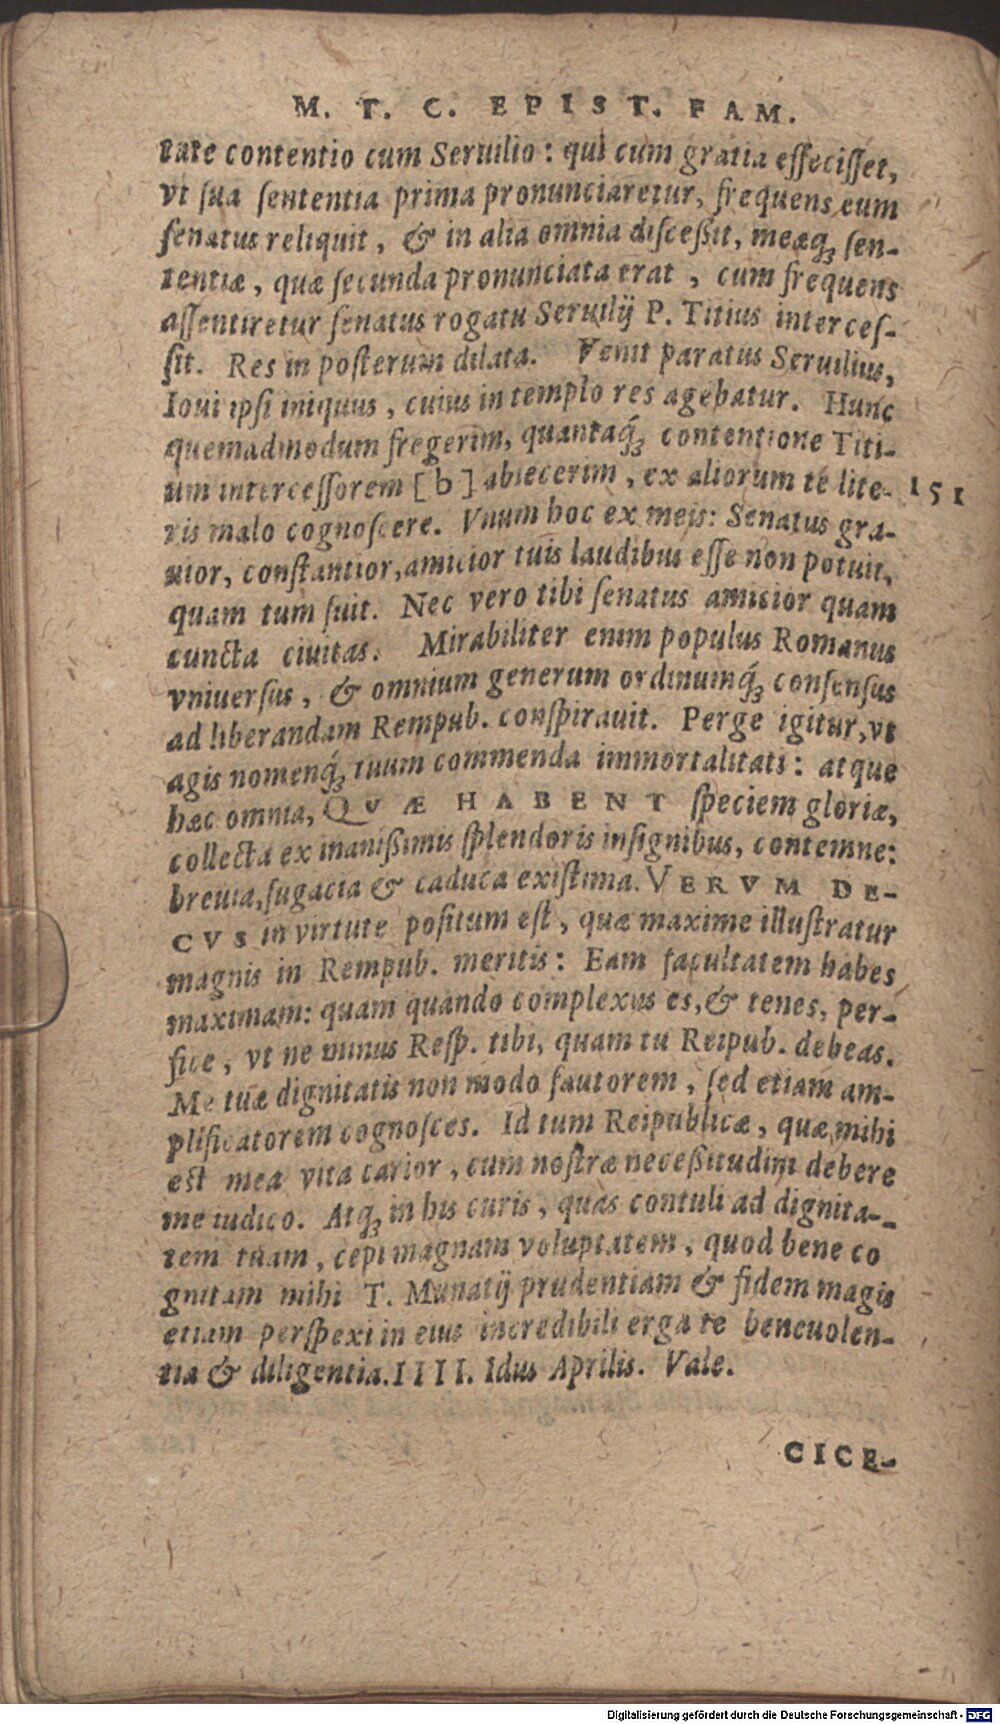 M. T. C. EPIST. FAM.
tate contentio cum Seruilio: qui cum gratia effecisset,
vt sua sententia prima pronunciaretur, frequens eum
senatus reliquit, & in alia omnia disceßit, meæq́; sen-
tentiæ, quæ secunda pronunciata erat, cum frequens
assentiretur senatus rogatu Seruilij P. Titius interces-
sit. Res in posterum dilata. Venit paratus Seruilius,
Ioui ipsi iniquus, cuius in templo res agebatur. Hunc
quemadmodum fregerim, quantaq́; contentione Titi-
um intercessorem [b] abiecerim, ex aliorum te lite-
151
ris malo cognoscere. Vnum hoc ex meis: Senatus gra-
uior, constantior, amicior tuis laudibus esse non potuit,
quam tum fuit. Nec vero tibi senatus amicior quam
cuncta ciuitas. Mirabiliter enim populus Romanus
vniuersus, & omnium generum ordinumq́; consensus
ad liberandam Rempub. conspirauit. Perge igitur, vt
agis nomenq́; tuum commenda immortalitati: atque
hæc omnia, QVÆ HABENT speciem gloriæ,
collecta ex inanißimis splendoris insignibus, contemne:
breuia, fugacia & caduca existima. VERVM DE-
CVS in virtute positum est, quæ maxime illustratur
magnis in Rempub. meritis: Eam facultatem habes
maximam: quam quando complexus es, & tenes, per-
fice, vt ne minus Resp. tibi, quam tu Reipub. debeas.
Me tuæ dignitatis non modo fautorem, sed etiam am-
plificatorem cognosces. Id tum Reipublicæ, quæ mihi
est mea vita carior, cum nostræ neceßitudini debere
me iudico. Atq; in his curis, quas contuli ad dignita-
tem tuam, cepi magnam voluptatem, quod bene co
gnitam mihi T. Munatij prudentiam & fidem magis
etiam perspexi in eius incredibili erga te beneuolen-
tia & diligentia. IIII. Idus Aprilis. Vale.
CICE-
Digitalisierung gefördert durch die Deutsche Forschungsgemeinschaft - DFG